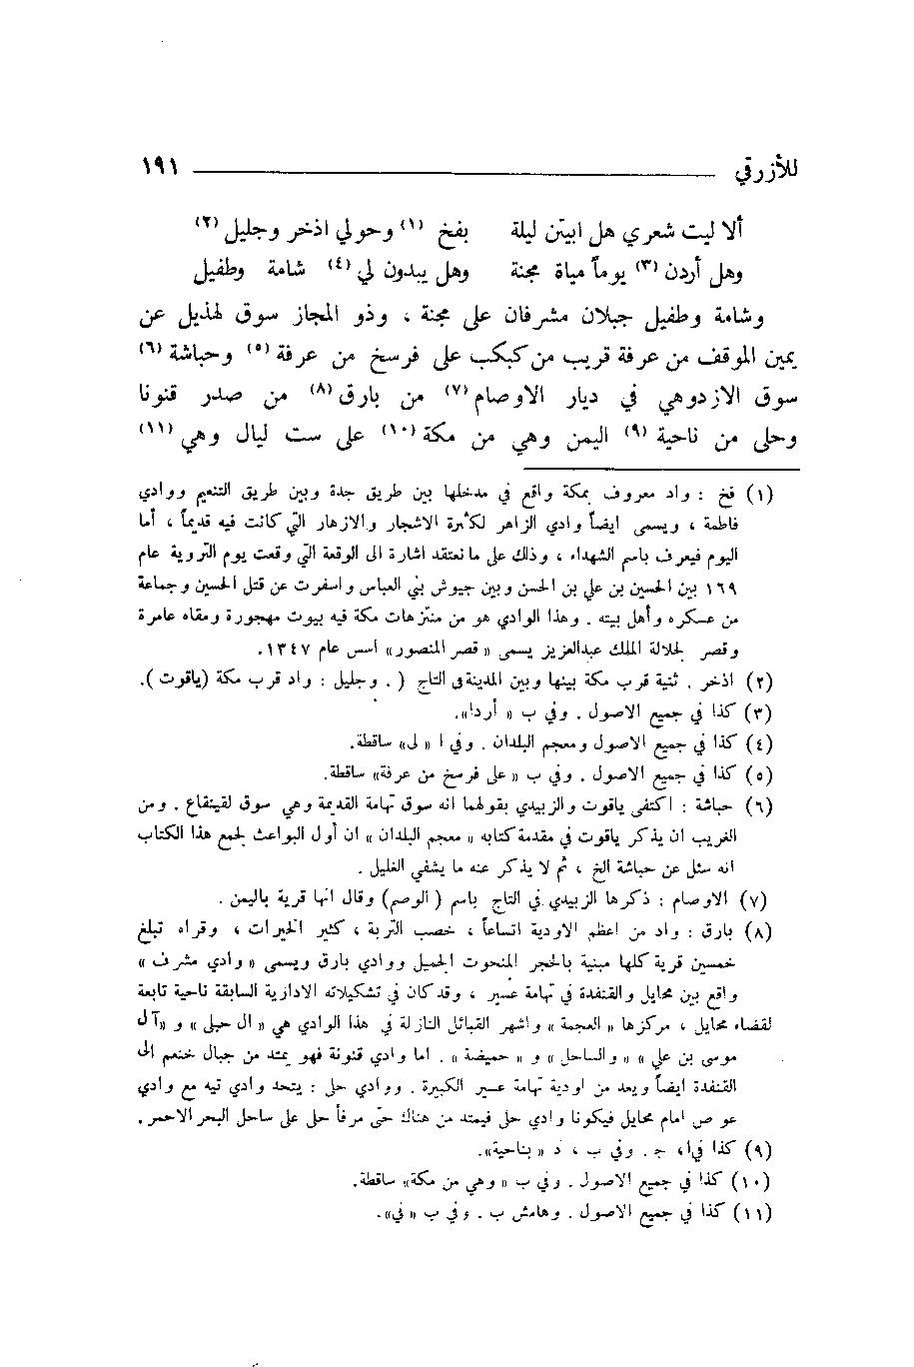 للأزرقي ١٩١
ألا ليت شعري هل ابيتن ليلة بفخ (١) وحولي اذخر وجليل (٢)
وهل أردن (٣) يوماً مياة مجنة وهل يبدون لي (٤) شامة وطفيل
وشامة وطفيل جبلان مشرفان على مجنة ، وذو المجاز سوق لهذيل عن
يمين الموقف من عرفة قريب من كبكب على فرسخ من عرفة (٥) وحباشة (٦)
سوق الازد وهي في ديار الاوصام (٧) من بارق (٨) من صدر قنونا
وحلى من ناحية (٩) اليمن وهي من مكة (١٠) على ست ليال وهي (١١)
(١) فخ : واد معروف بمكة واقع في مدخلها بين طريق جدة وبين طريق التنعيم ووادي
فاطمة ، ويسمى ايضاً وادي الزاهر لكثرة الاشجار والازهار التي كانت فيه قديماً ، أما
اليوم فيعرف باسم الشهداء ، وذلك على ما نعتقد اشارة الى الوقعة التي وقعت يوم التروية عام
١٦٩ بين الحسين بن علي بن الحسن وبين جيوش بني العباس واسفرت عن قتل الحسين وجماعة
من عسكره وأهل بيته . وهذا الوادي هو من منتزهات مكة فيه بيوت مهجورة ومقاه عامرة
وقصر لجلالة الملك عبدالعزيز يسمى « قصر المنصور» أسس عام ١٣٤٧.
(٢) اذخر . ثنية قرب مكة بينها وبين المدينة في التاج ( . وجليل : واد قرب مكة (ياقوت ).
(٣) كذا في جميع الاصول . وفي ب « أردا».
(٤) كذا في جميع الاصول ومعجم البلدان . وفي ا « لى» ساقطة.
(٥) كذا في جميع الاصول . وفي ب « على فرسخ من عرفة» ساقطة.
(٦) حباشة : اكتفى ياقوت والزبيدي بقولهما انه سوق تهامة القديمة وهي سوق لقينقاع . ومن
الغريب ان يذكر ياقوت في مقدمة كتابه « معجم البلدان » ان أول البواعث لجمع هذا الكتاب
انه سئل عن حباشة الخ ، ثم لا يذكر عنه ما يشفي الغليل .
(٧) الاوصام : ذكرها الزبيدي في التاج باسم ( الوصم) وقال انها قرية باليمن .
(٨) بارق : واد من اعظم الاودية اتساعاً ، خصب التربة ، كثير الخيرات ، وقراه تبلغ
خمسين قرية كلها مبنية بالحجر المنحوت الجميل ووادي بارق ويسمى « وادي مشرف »
واقع بين محايل والقنفدة في تهامة عسير ، وقد كان في تشكيلاته الادارية السابقة ناحية تابعة
لقضاء محايل ، مركزها « العجمة » واشهر القبائل النازلة في هذا الوادي هي « ال حبلى » و « آل
موسى بن علي » « والساحل » و « حميضة » . اما وادي قنونة فهو يمتد من جبال خثعم الى
القنفدة ايضاً ويعد من اودية تهامة عسير الكبيرة . ووادي حلى : يتحد وادي تيه مع وادي
عوص امام محايل فيكونا وادي حلى فيمتد من هناك حتى مرفأ حلى على ساحل البحر الاحمر .
(٩) كذا في ا ، ج . وفي ب ، د « بناحية».
(١٠) كذا في جميع الاصول . وفي ب « وهي من مكة» ساقطة.
(١١) كذا في جميع الاصول . وهامش ب . وفي ب « في».